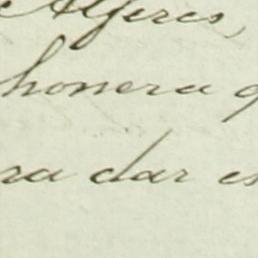 Alferes,
honera q
ra dar es